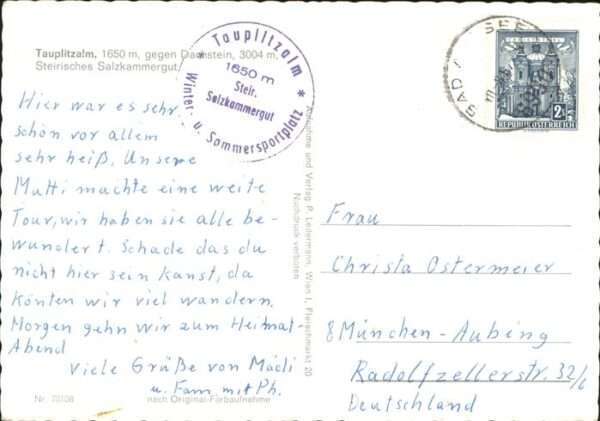 Tauplitzalm, 1650 m, gegen Dachstein, 3004 m,
Steirisches Salzkammergut
* Tauplitzalm *
1650 m
Steir.
Salzkammergut
Winter- u. Sommersportplatz
SEE
2S
REPUBLIK ÖSTERREICH
Hier war es sehr
schön vor allem
sehr heiß, Unsere
Mutti machte eine weite
Tour, wir haben sie alle be-
wundert. Schade das du
nicht hier sein kanst, da
könten wir viel wandern.
Morgen gehn wir zum Heimat-
Abend
Viele Grüße von Mädi
u. Fam. mit Ph.
Nr. 70108
nach Original-Farbaufnahme
Aufnahme und Verlag P. Ledermann, Wien I., Fleischmarkt 20
Nachdruck verboten
Frau
Christa Ostermeier
8 München-Aubing
Radolfzellerstr. 32/c
Deutschland